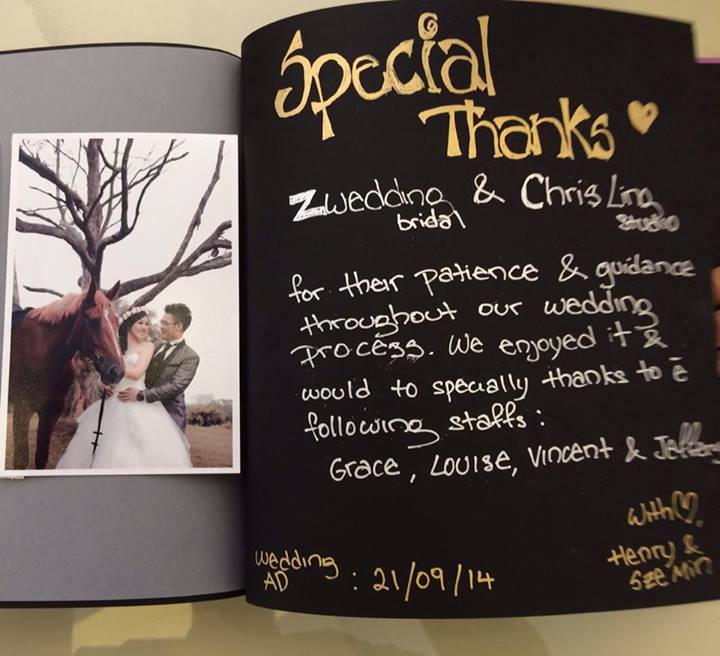 Special
Thanks ♥
Zwedding & Chris Ling
bridal studio
for their patience & guidance
throughout our wedding
process. We enjoyed it &
would to specially thanks to ē
following staffs :
Grace, Louise, Vincent &
With ♡,
Henry &
Sze Min
Wedding
AD : 21/09/14